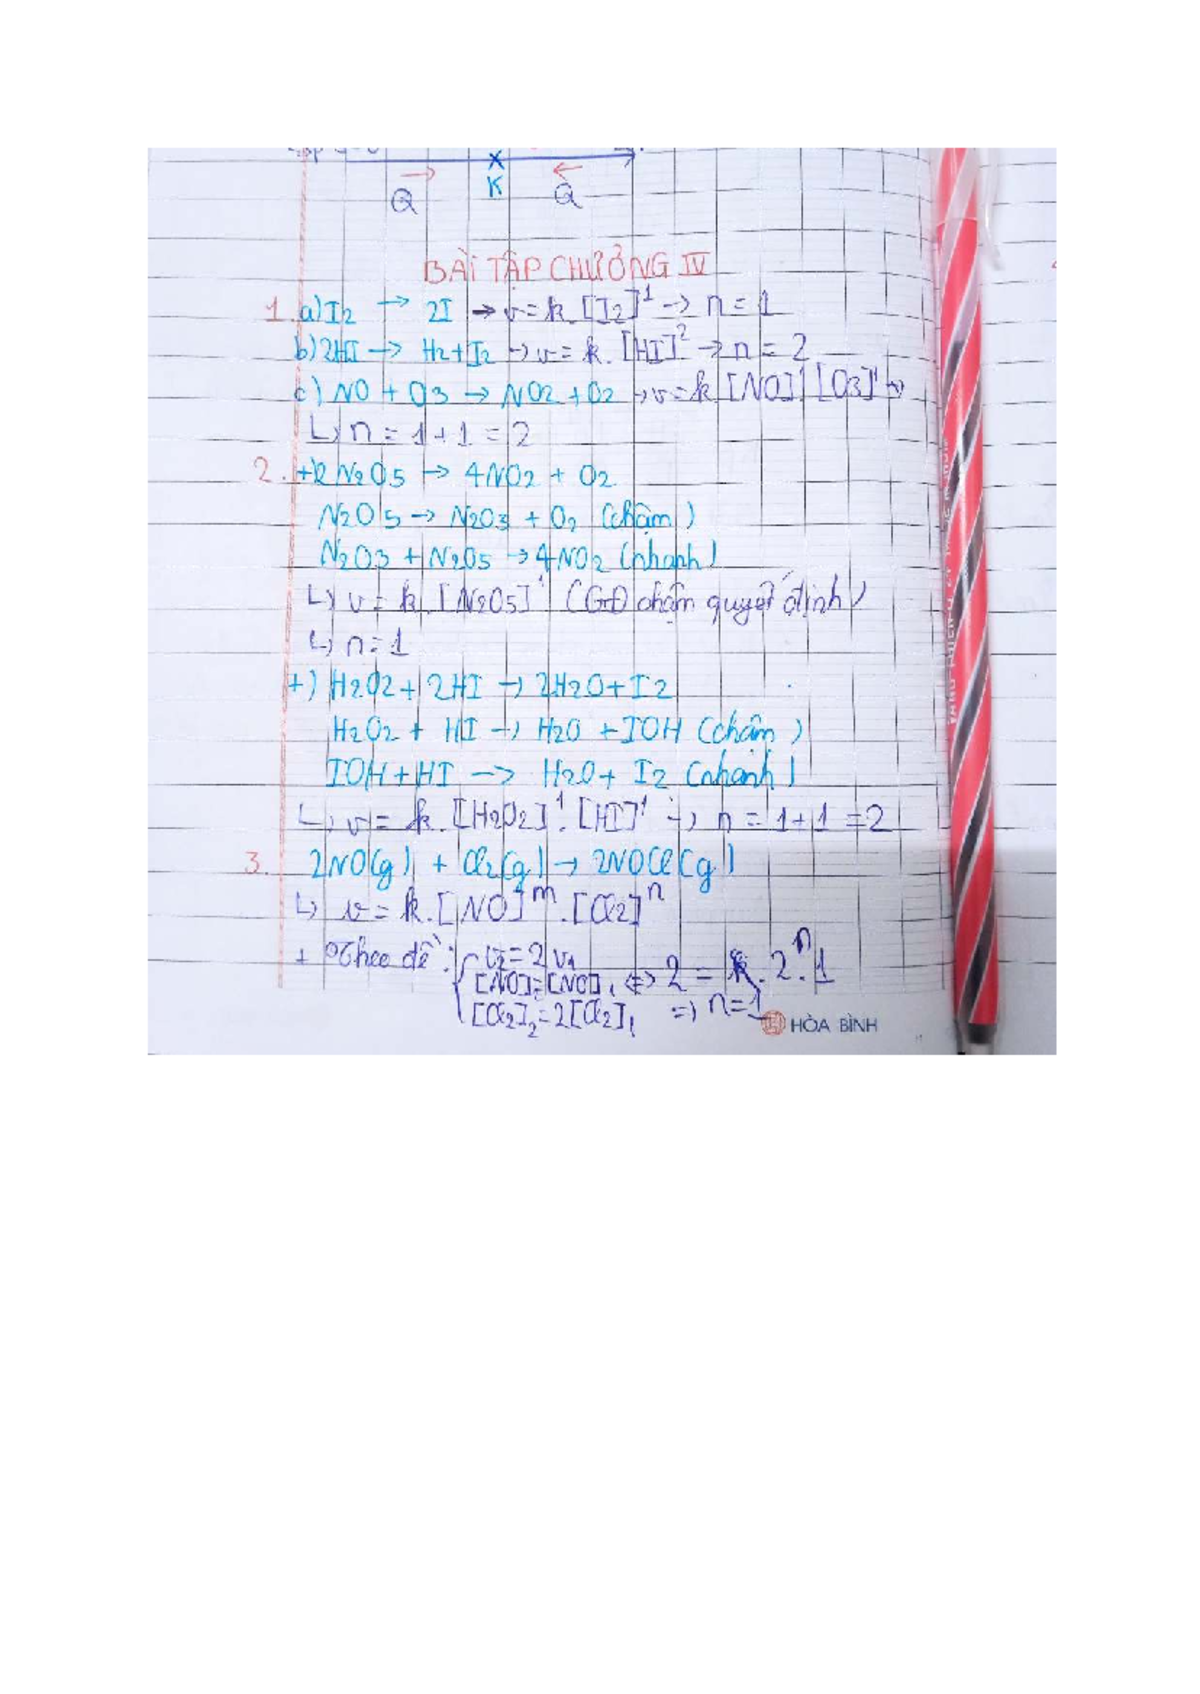 X
Q K Q
BÀI TẬP CHƯƠNG IV
1. a) I2 → 2I → v = k. [I2]^1 → n = 1
b) 2HI → H2 + I2 → v = k. [HI]^2 → n = 2
c) NO + O3 → NO2 + O2 → v = k. [NO]^1 [O3]^1 →
↳ n = 1 + 1 = 2
2. +) 2N2O5 → 4NO2 + O2
N2O5 → N2O3 + O2 (chậm)
N2O3 + N2O5 → 4NO2 (nhanh)
↳ v = k. [N2O5]^1 (GĐ chậm quyết định)
↳ n = 1
+) H2O2 + 2HI → 2H2O + I2
H2O2 + HI → H2O + IOH (chậm)
IOH + HI → H2O + I2 (nhanh)
↳ v = k. [H2O2]^1. [HI]^1 → n = 1 + 1 = 2
3. 2NO(g) + Cl2(g) → 2NOCl(g)
↳ v = k. [NO]^m. [Cl2]^n
+ Theo đề: { v2 = 2v1
[NO]2 = [NO]1 <=> 2 = k. 2^n. 1
[Cl2]2 = 2[Cl2]1 => n = 1
HÒA BÌNH